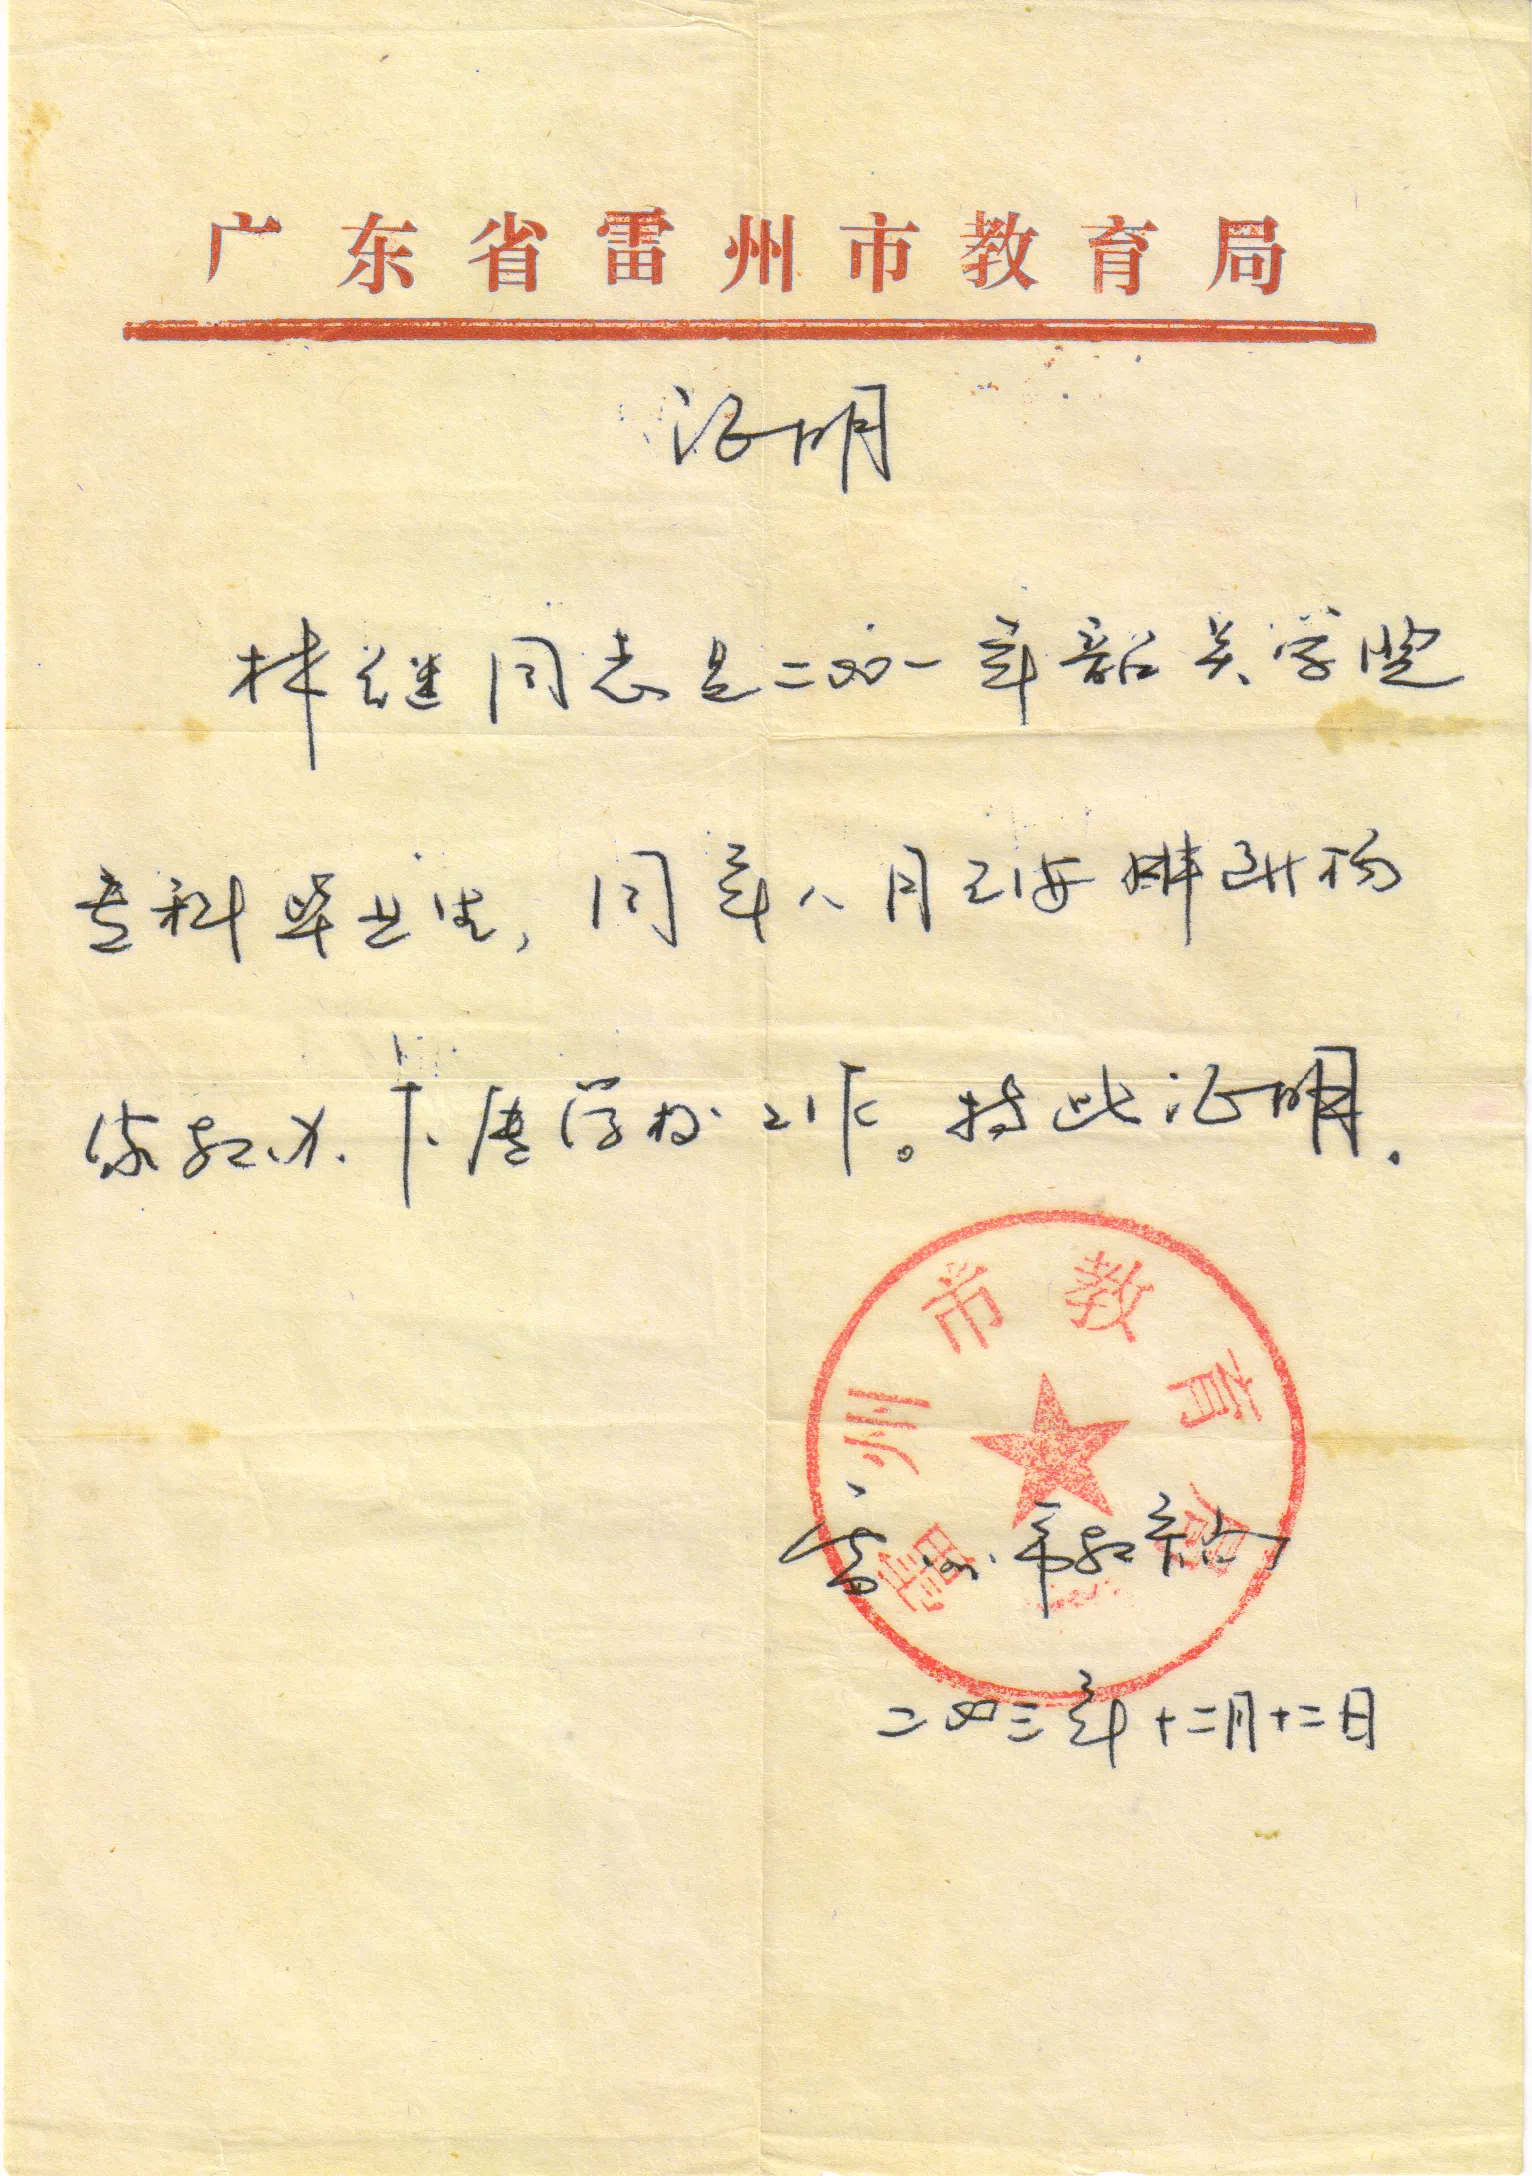 广东省雷州市教育局
证明
林继同志是二〇〇一年韶关学院
专科毕业生,同年八月已安排到杨
家教办 唐学校工作。特此证明.
雷州市教育局
雷州市教育局
二〇〇三年十二月十二日